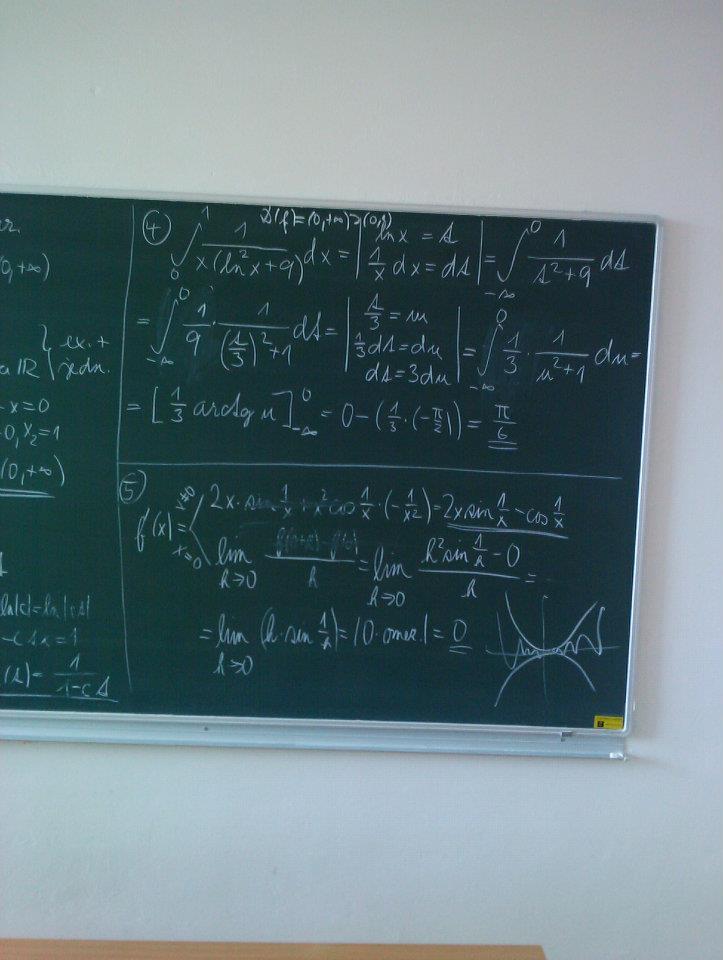 (0,+∞)
ex. +
jedn.
-x=0
-0, x₂=1
(0,+∞)
ln|c|=ln|cs|
-csx=1
(s)= 1/(1-cs)
④ D(f)=(0,+∞)⊃(0,1)
∫₀¹ 1/(x(ln²x+9)) dx = | ln x = s ; 1/x dx = ds | = ∫_{-∞}^0 1/(s²+9) ds
= ∫_{-∞}^0 1/9 · 1/((s/3)²+1) ds = | s/3 = u ; 1/3 ds = du ; ds = 3du | = ∫_{-∞}^0 1/3 · 1/(u²+1) du =
= [1/3 arctg u]_{-∞}^0 = 0-(1/3·(-π/2)) = π/6
⑤
f'(x) = x≠0 2x·sin 1/x + x² cos 1/x · (-1/x²) = 2x sin 1/x - cos 1/x
x=0 lim_{h→0} (f(0+h)-f(0))/h = lim_{h→0} (h² sin 1/h - 0)/h =
= lim_{h→0} (h·sin 1/h) = |0·omez.| = 0